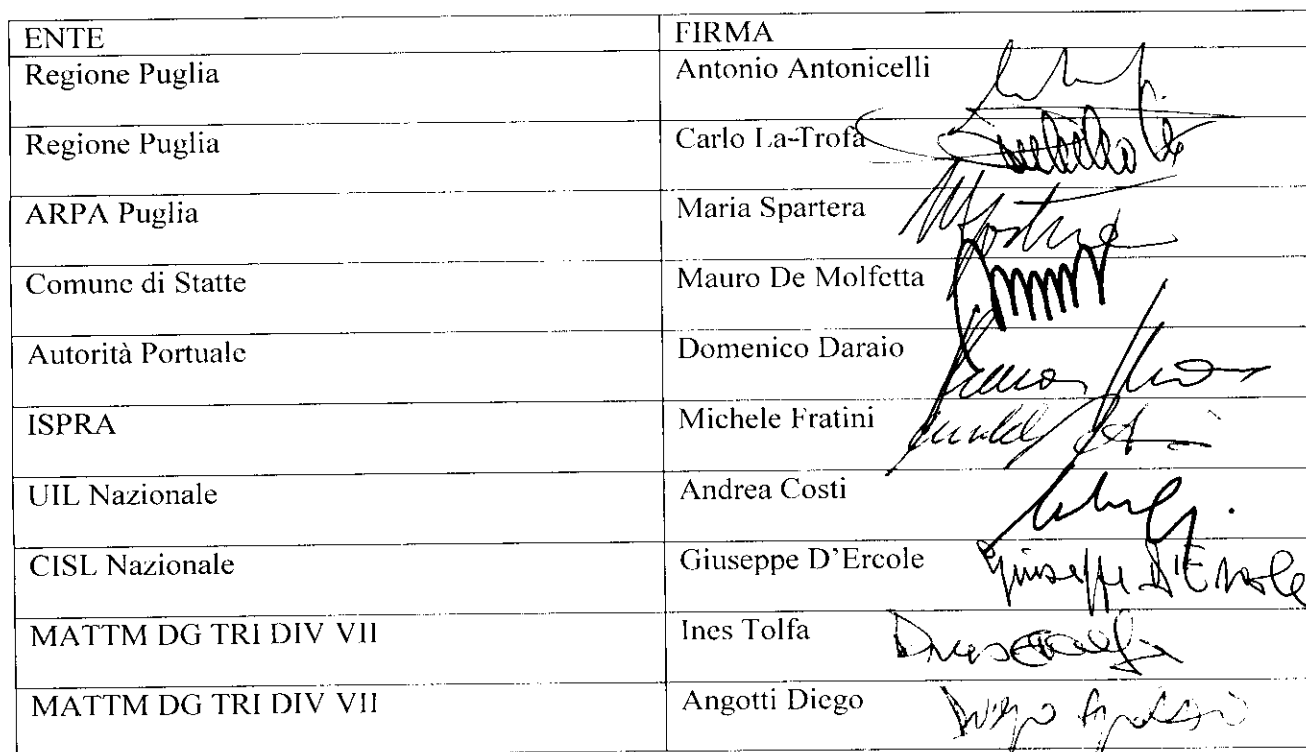 ENTE FIRMA
Regione Puglia Antonio Antonicelli
Regione Puglia Carlo La-Trofa
ARPA Puglia Maria Spartera
Comune di Statte Mauro De Molfetta
Autorità Portuale Domenico Daraio
ISPRA Michele Fratini
UIL Nazionale Andrea Costi
CISL Nazionale Giuseppe D'Ercole Giuseppe D'Ercole
MATTM DG TRI DIV VII Ines Tolfa
MATTM DG TRI DIV VII Angotti Diego